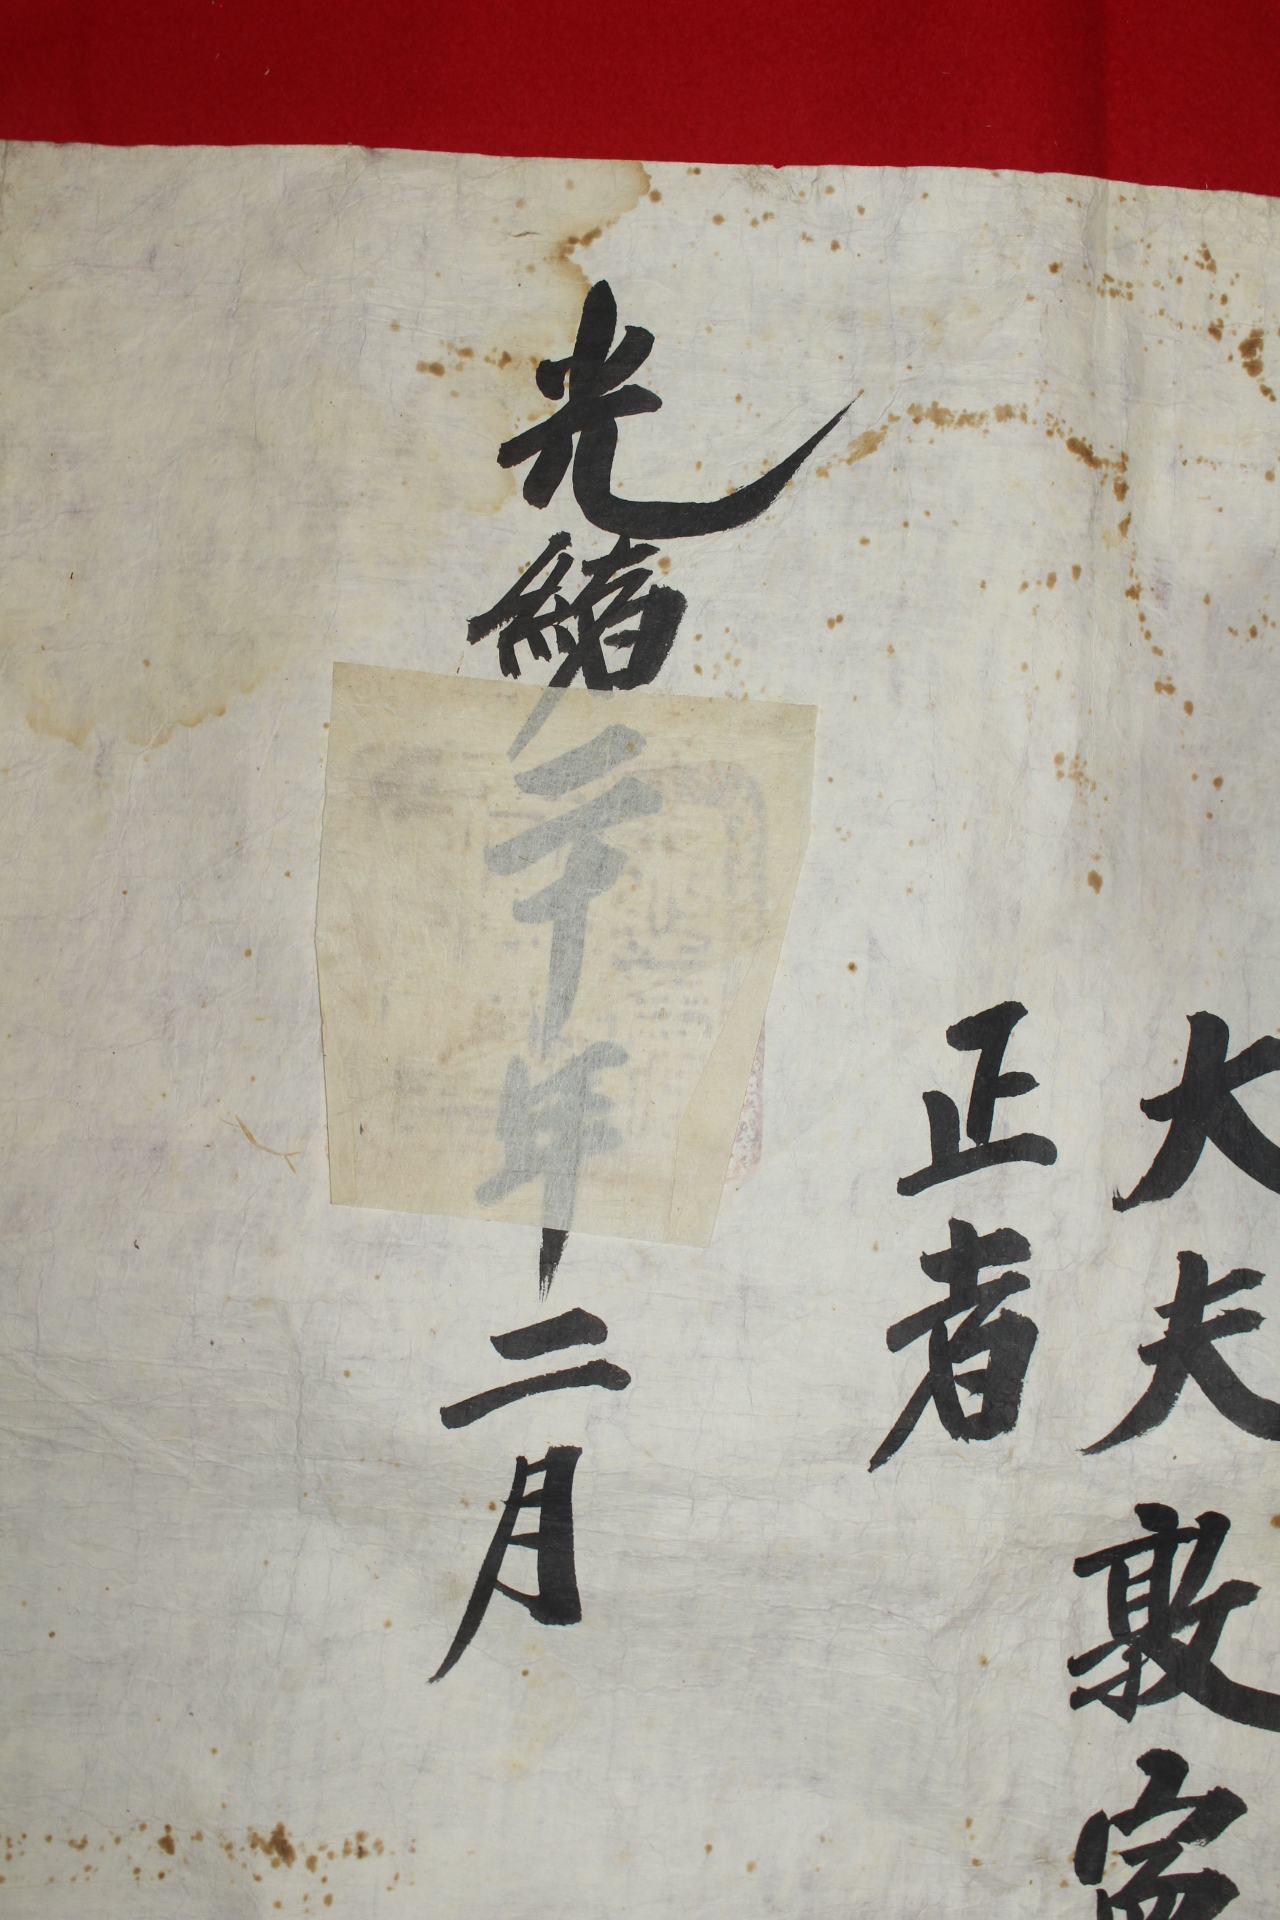 大夫敦
正者
光緒二十年二月